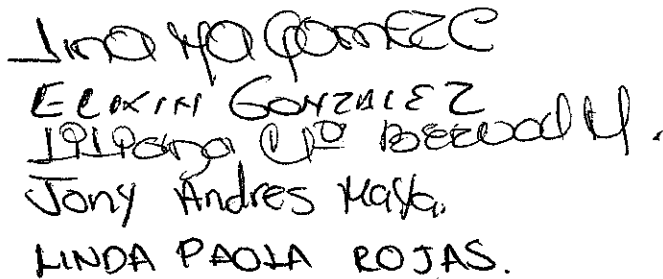 Lina Ma Gomez C
ELKIN GONZALEZ
Liliana Ma Bernal M.
Jony Andres Maya.
LINDA PAOLA ROJAS.